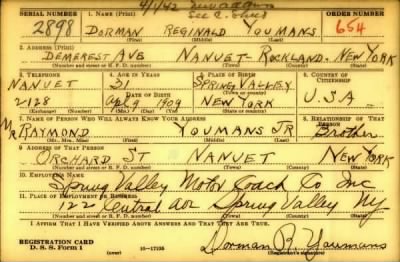 SERIAL NUMBER
1. NAME (Print)
ORDER NUMBER
2898
DORMAN REGINALD YOUMANS
654
(First) (Middle) (Last)
2. ADDRESS (Print)
DEMEREST AVE NANUET-ROCKLAND. NEW YORK
(Number and street or R. F. D. number) (Town) (County) (State)
3. TELEPHONE
4. AGE IN YEARS
5. PLACE OF BIRTH
6. COUNTRY OF CITIZENSHIP
NANUET
31
SPRING VALLEY
DATE OF BIRTH
(Town or county)
2128
Apl 9 1909
NEW YORK
U.S.A
(Exchange) (Number)
(Mo.) (Day) (Yr.)
(State or country)
7. NAME OF PERSON WHO WILL ALWAYS KNOW YOUR ADDRESS
8. RELATIONSHIP OF THAT PERSON
MR RAYMOND YOUMANS JR
Brother
(Mr., Mrs., Miss) (First) (Middle) (Last)
9. ADDRESS OF THAT PERSON
ORCHARD ST NANUET NEW YORK
(Number and street or R. F. D. number) (Town) (County) (State)
10. EMPLOYER'S NAME
Spring Valley Motor Coach Co Inc
11. PLACE OF EMPLOYMENT OR BUSINESS
122 Central Ave Spring Valley NY
(Number and street or R. F. D. number) (Town) (County) (State)
I AFFIRM THAT I HAVE VERIFIED ABOVE ANSWERS AND THAT THEY ARE TRUE.
REGISTRATION CARD
D. S. S. Form 1
(over)
16-17105
Dorman R. Youmans
(Registrant's signature)